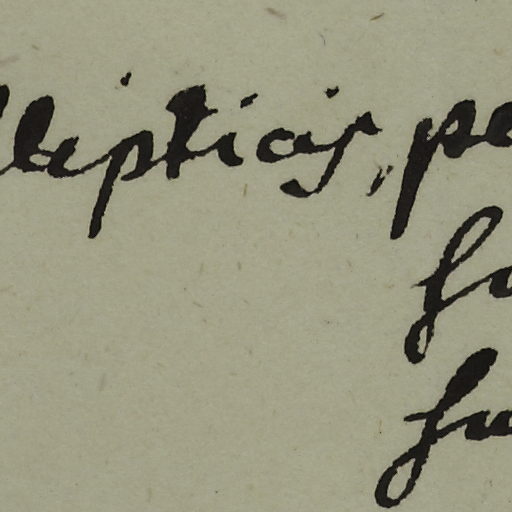 llipticis, pe
su
su